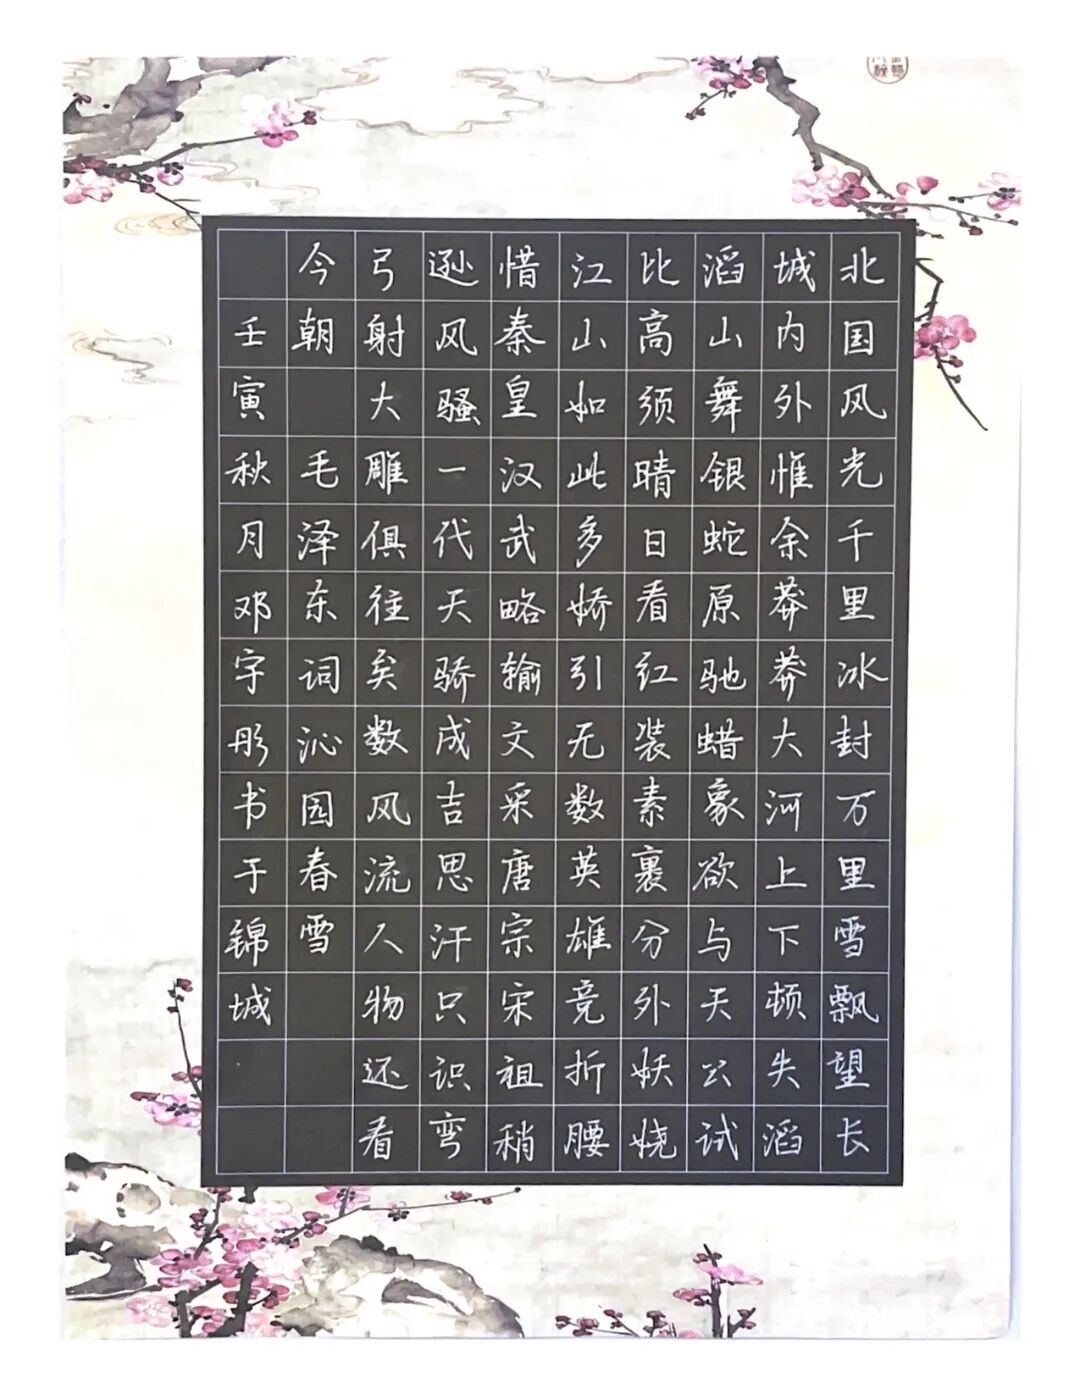 北国风光千里冰封万里雪飘望长
城内外惟余莽莽大河上下顿失滔
滔山舞银蛇原驰蜡象欲与天公试
比高须晴日看红装素裹分外妖娆
江山如此多娇引无数英雄竞折腰
惜秦皇汉武略输文采唐宗宋祖稍
逊风骚一代天骄成吉思汗只识弯
弓射大雕俱往矣数风流人物还看
今朝 毛泽东词沁园春雪
壬寅秋月邓字彤书于锦城